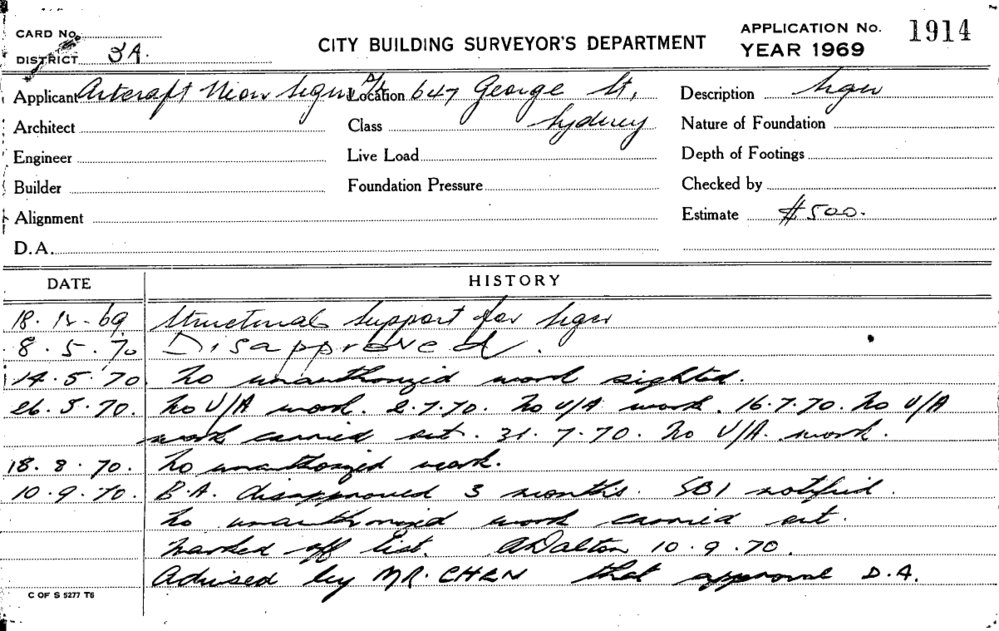 CARD No.
CITY BUILDING SURVEYOR'S DEPARTMENT
APPLICATION No. 1914
YEAR 1969
DISTRICT 3A.
Applicant Artcraft Neon Signs P/L Location 647 George St, Description Sign
Architect Class Sydney Nature of Foundation
Engineer Live Load Depth of Footings
Builder Foundation Pressure Checked by
Alignment Estimate $500.
D.A.
DATE HISTORY
18.12.69 Structural Support for Sign
8.5.70 Disapproved.
14.5.70. No unauthorized work sighted.
26.5.70. No U/A work. 2.7.70. No U/A work. 16.7.70. No U/A
work carried out. 31.7.70. No U/A. work.
18.8.70. No unauthorized work.
10.9.70. B.A. disapproved 3 months. SBI notified.
No unauthorized work carried out.
Marked off list. A Dalton 10.9.70.
Advised by MR. CHEN that approval D.A.
C OF S 5277 T6